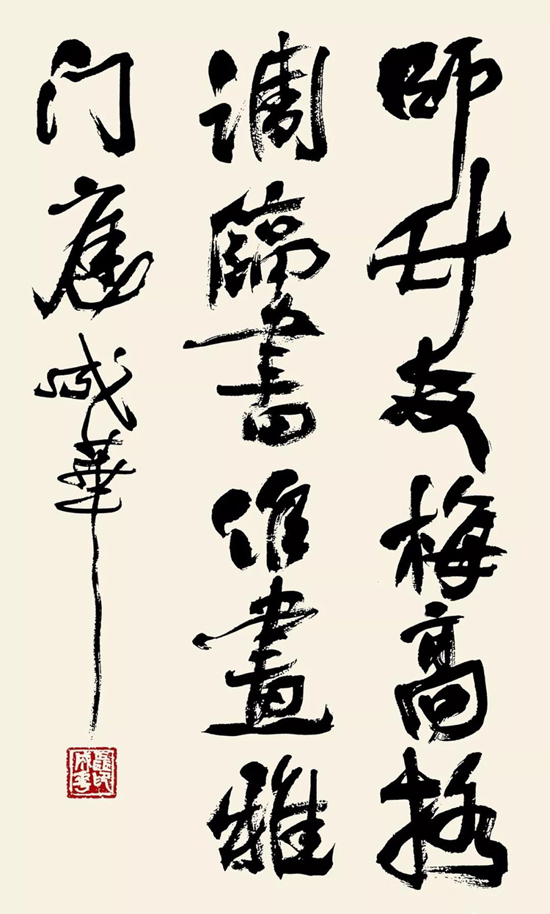 師竹友梅高格
調臨書作畫雅
门庭成華